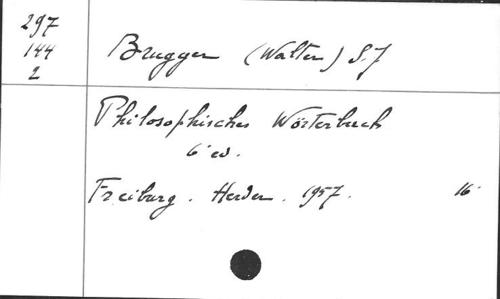 297
144
2
Brugger (Walter) S.J
Philosophisches Wörterbuch
6ᵉ ed.
Freiburg. Herder. 1957. 16°